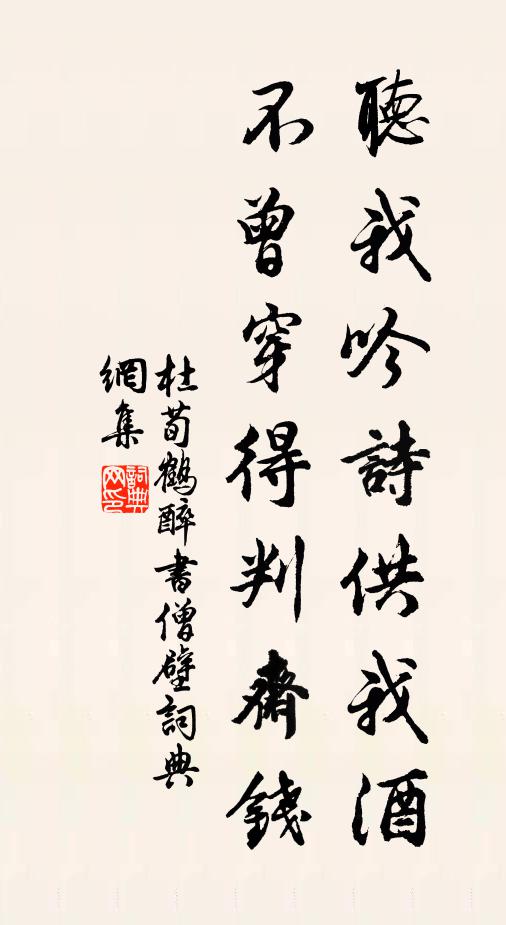 聽我吟詩供我酒
不曾穿得判齋錢
杜荀鶴醉書僧壁詞典
網集
詞典
网印